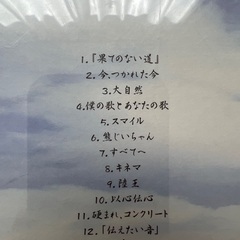 1.「果てのない道」
2.今、つかれた今
3.大自然
4.僕の歌とあなたの歌
5.スマイル
6.熊じいちゃん
7.すべてへ
8.キネマ
9.陸王
10.どん心伝心
11.硬まれ、コンクリート
12.「伝えたい音」